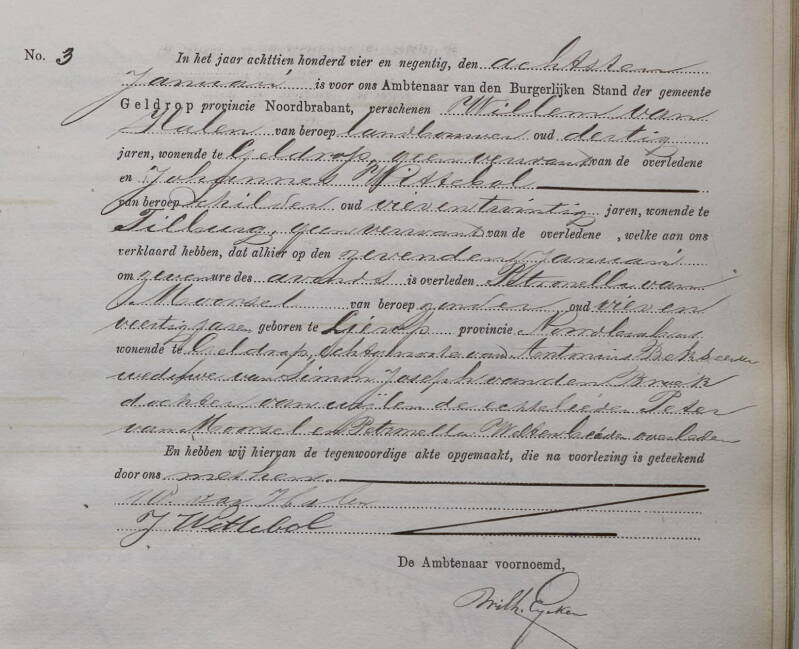 No. 3
In het jaar achttien honderd vier en negentig, den achtsten
Januari is voor ons Ambtenaar van den Burgerlijken Stand der gemeente
Geldrop provincie Noordbrabant, verschenen Willem van
Halen van beroep landbouwer oud dertig
jaren, wonende te Geldrop, geen verwant van de overledene
en Johannes Wittebol
van beroep schilder oud vierentwintig jaren, wonende te
Tilburg, geen verwant van de overledene , welke aan ons
verklaard hebben, dat alhier op den zevenden Januari
om zeven ure des avonds is overleden Petronella van
Moorsel van beroep zonder oud vieren
veertig jaren geboren te Lierop provincie Noordbrabant
wonende te Geldrop, echtgenoote van Antonius eerder
weduwe van Simon Joseph van den Broek
dochter van wijlen de echtelieden Peter
van Moorsel en Petronella overleden
En hebben wij hiervan de tegenwoordige akte opgemaakt, die na voorlezing is geteekend
door ons met hen
W. van Halen
J Wittebol
De Ambtenaar voornoemd,
Wilh. Eycken